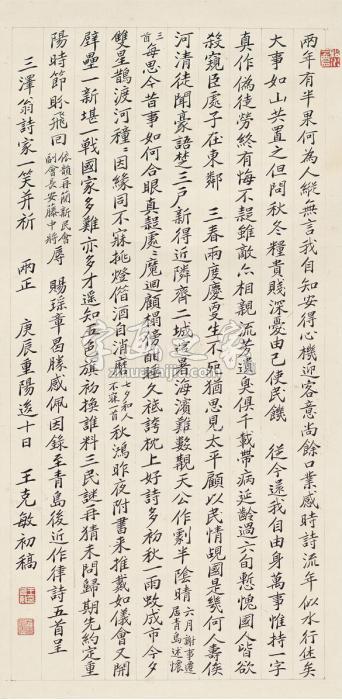 兩年有半果何為人縱無言我自知安得心機迎客意尚餘口業感時詩流年似水行迷矣
大事如山共置之但問秋冬糧貴賤深憂由己使民饑　從今還我自由身萬事惟持一字
真作偽徒勞終有悔不誤雖敵亦相親流芳遺臭俱千載帶病延齡過六旬慙愧國人皆欲
殺窺臣處子在東鄰　三春兩度慶更生下死猶思見太平顧以民情覘國是幾何人壽俟
河清徒聞豪語楚三戶新得近隣齊二城宜暑海濱難數覯天公作劇半陰晴六月謝事遷居青島述懷
三首每思今昔事如何合眼真疑處處魔迴顧榻後酣睡久秪誇枕上好詩多初秋一雨蚊成市今夕
雙星鵲渡河種種因緣同不寐挑燈借酒自消磨七夕和人不寐一首秋鴻昨夜附書來推戴如儀會又開
壁壘一新堪一戰國家多難亦多才遙知五色旗初換誰料三民謎再猜未問歸期先約定重
陽時節盼飛回依韻再簡新民會副會長安藤中將辱　賜瑤章曷勝感佩因錄至青島後近作律詩五首呈
三澤翁詩家一笑并祈　兩正　庚辰重陽後十日　王克敏初稿